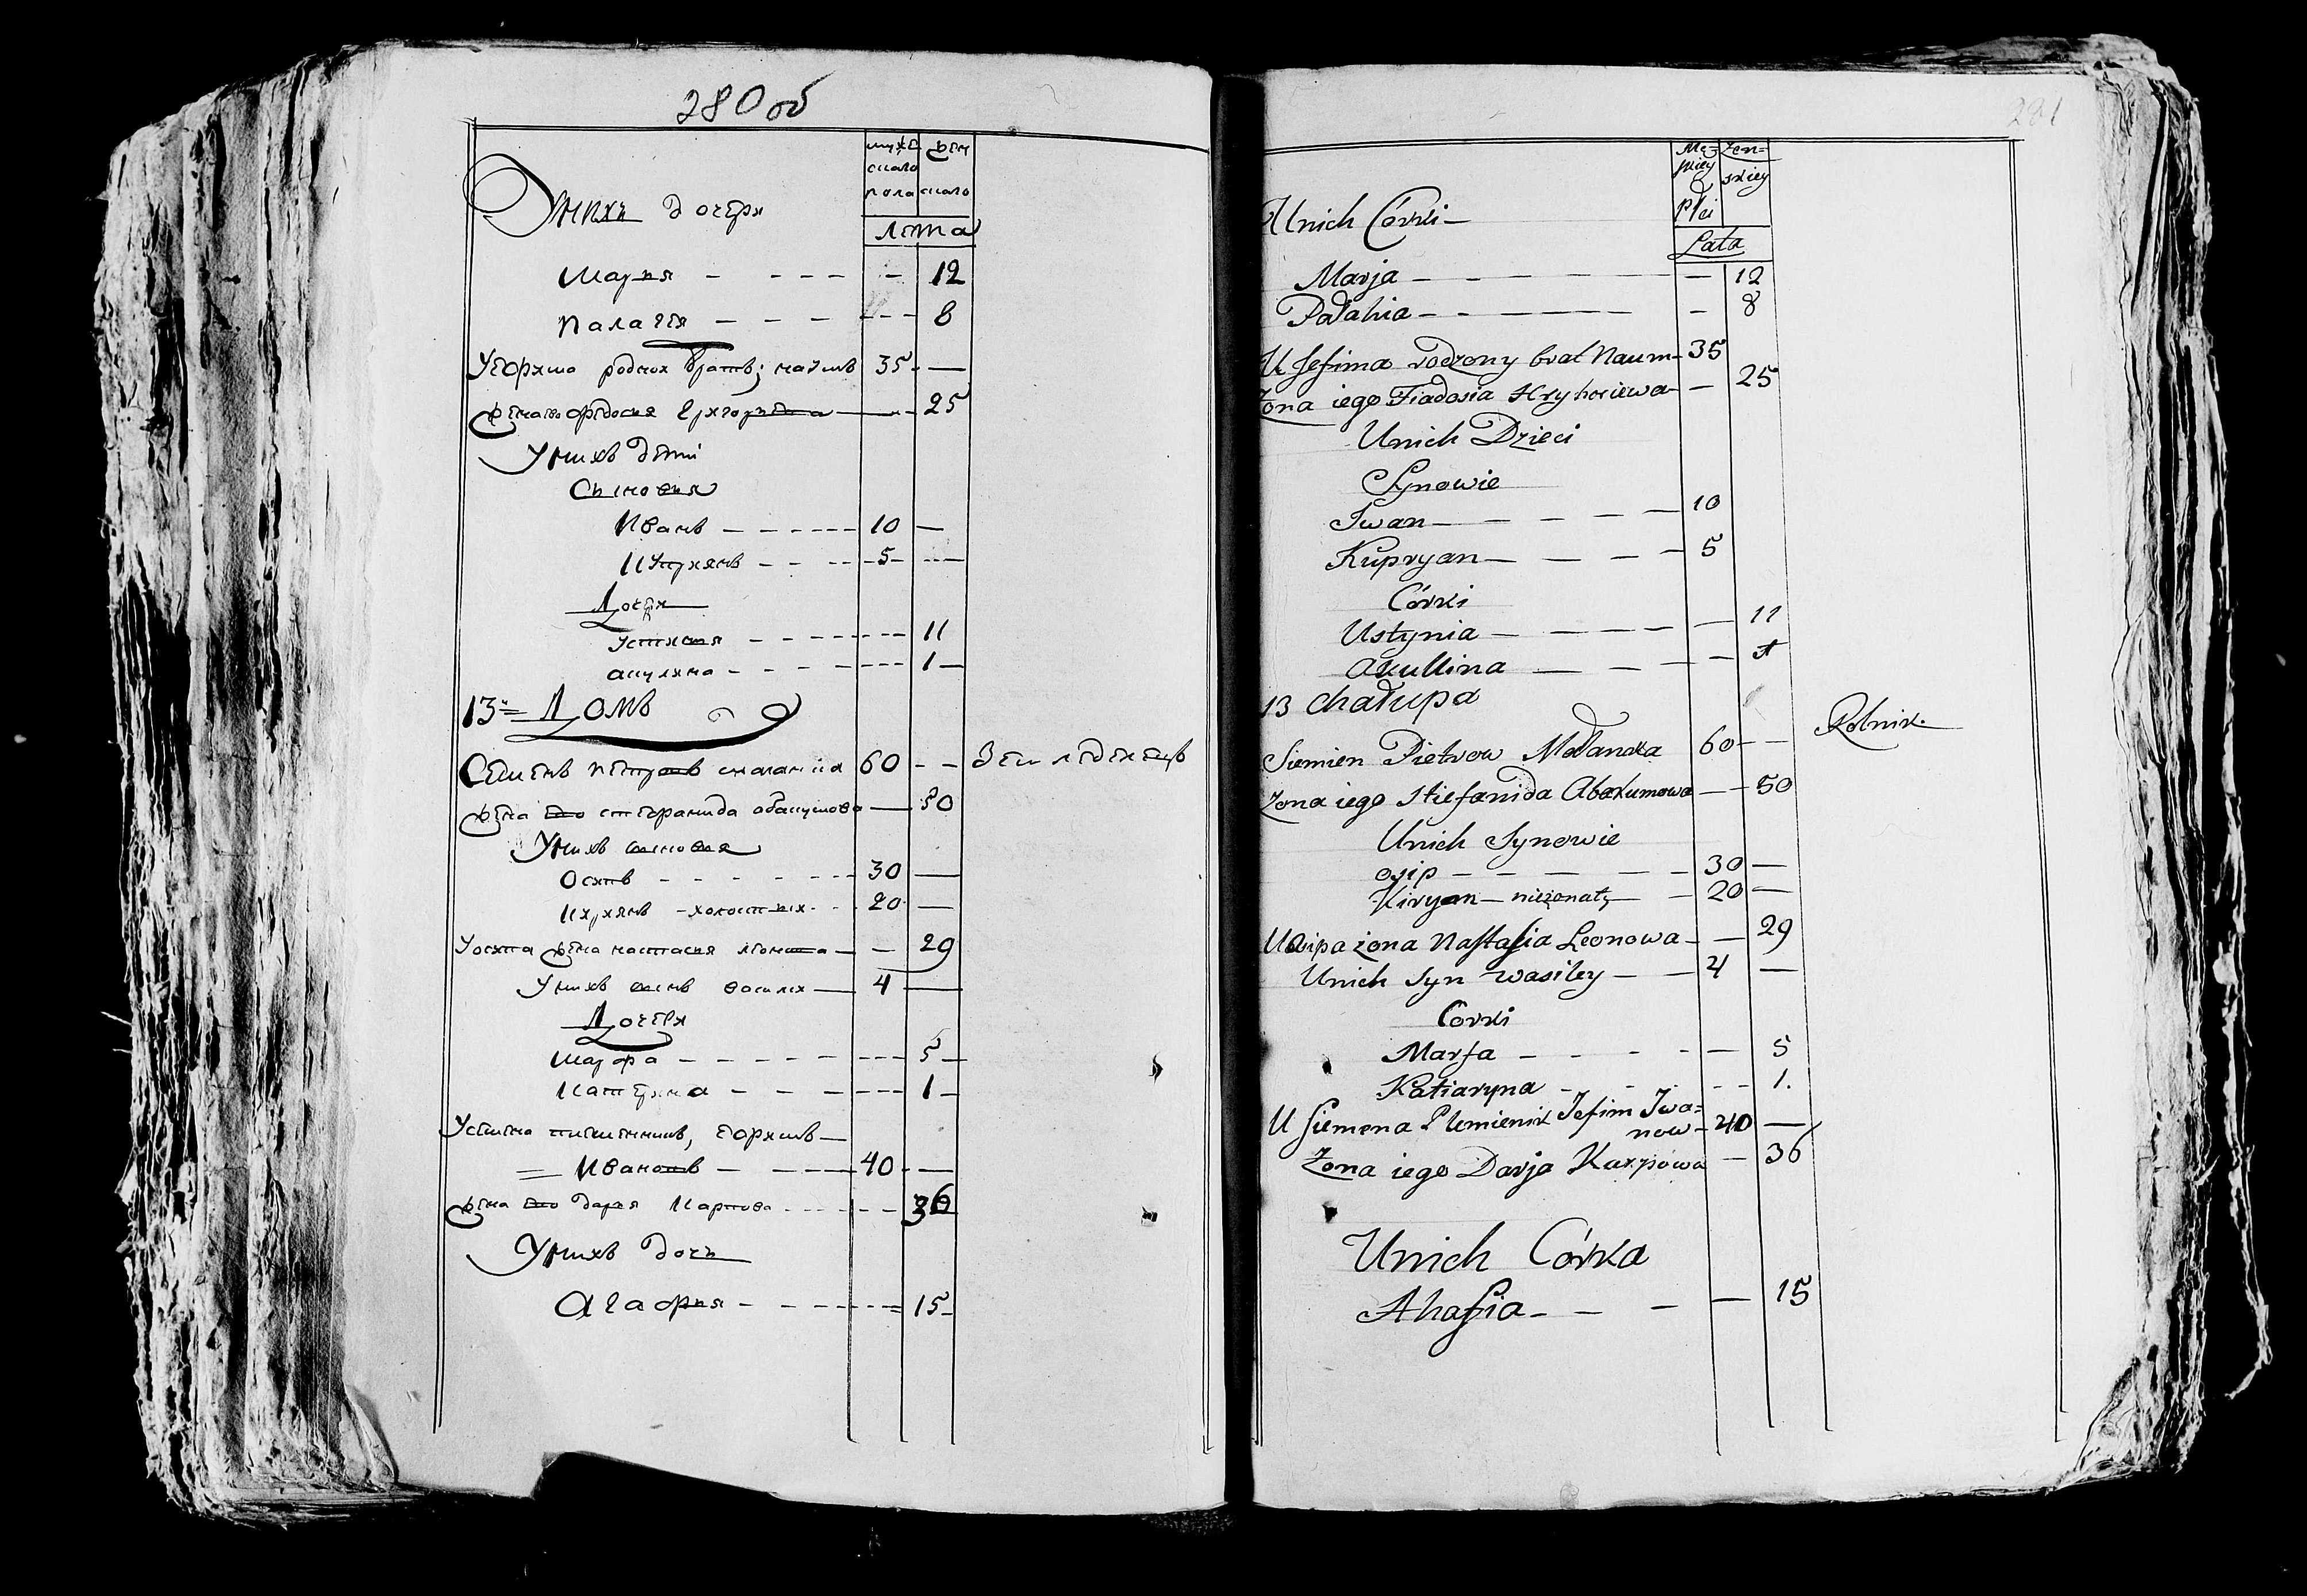 280 об
мужескаго пола
женскаго
лета
Унихъ дочери
Мария - - - - - 12
палагея - - - - - - 8
Уефима родной братъ; наумъ 35 -
жена его федосия Григорьева - 25
Унихъ дети
Сыновья
Иванъ - - - - - 10 -
Куприянъ - - - - 5 - - -
Дочери
устиния - - - - - - - 11
акулина - - - - - - - 1 -
13 = Домъ
Семенъ петровъ маланка 60 - - Земледелецъ
жена его стефанида абакумова - 50
Унихъ сыновья
Осипъ - - - - - - 30 -
кириянъ - холостыи - - 20 -
Уосипа жена настасия леонова - - 29
Унихъ сынъ василеи - 4 -
Дочери
Марфа - - - - - - - - 5 -
Катерина - - - - - - - 1 -
Усемена племенникъ, ефимъ -
= Ивановъ - - - - 40 - -
жена его дарья Карпова - - - - - 36
Унихъ дочь
Агафия - - - - - - = 15 -
281
Męzkiey Płci
żenskiey
Lata
Unich Córki -
Marja - - - - - - - 12
Pałahia - - - - - - - 8
U Jefima rodzony brat Naum - 35
Zona iego Fiadosia Hryhoriewa - - 25
Unich Dzieci
Synowie
Iwan - - - - - 10
Kupryan - - - - 5
Córki
Ustynia - - - - - 11
Akullina - - - - 1
13 chałupa
Siemien Pietrow Małanka 60 - - Rolnik.
Zona iego Stiefanida Abakumowa - - 50
Unich Synowie
osip - - - - - - 30 -
Kiryan - nieżonaty - - 20 -
U Osipa żona Nastasia Leonowa - - 29
Unich syn wasiley - - 4 -
Córki
Marfa - - - - - 5
Katiaryna - - - - - 1.
U Siemena Plemienik Jefim Iwa=
now - 40 -
Zona iego Darja Karpowa - 36
Unich Córka
Ahafia - - - - 15